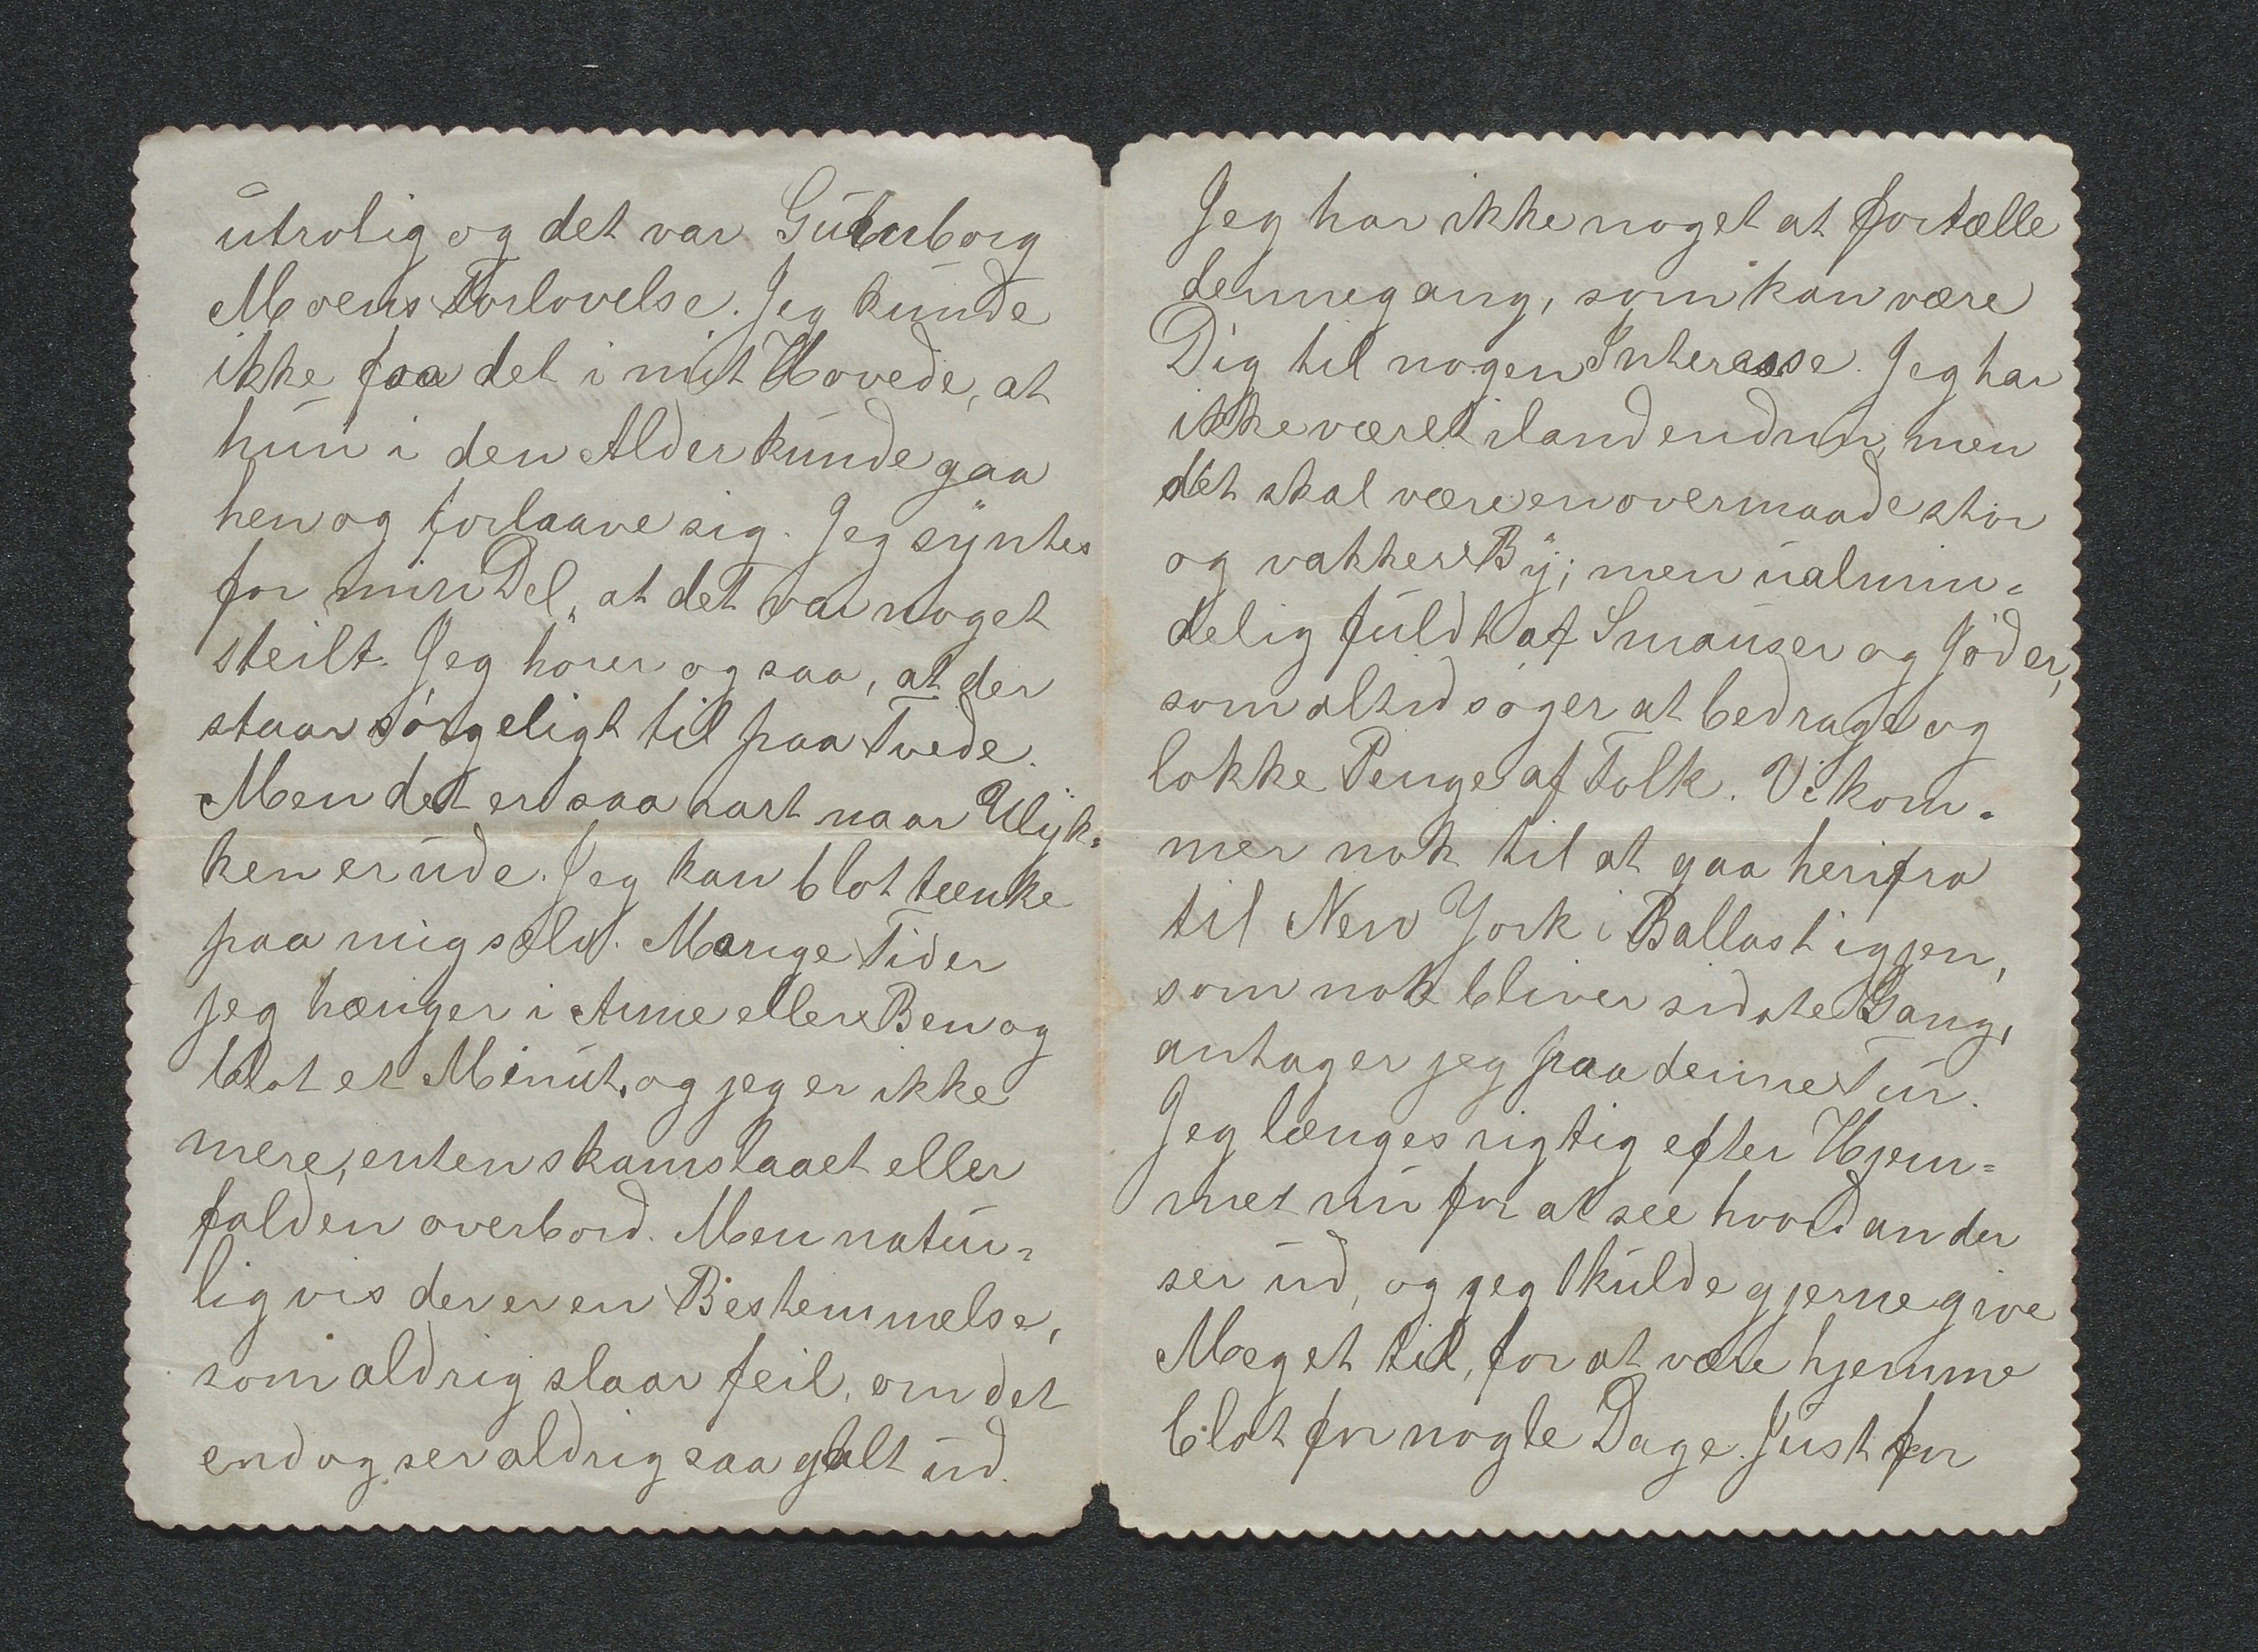 utrolig og det var Gunborg
Moens Forlovelse. Jeg kunde
ikke faa det i mit Hovede, at
hun i den Alder kunde gaa
hen og forlaave sig. Jeg syntes
for min Del, at det var noget
steilt. Jeg hører og saa, at der
staar sørgeligt til paa Tvede.
Men det er saa rart naar Ulyk=
ken er ude. Jeg kan blot tænke
paa mig selv. Mange Tider
jeg hænger i Arme eller Ben og
blot et Minut, og jeg er ikke
mere, enten skamslaaet eller
falden overbord. Men natur=
ligvis der er en Bestemmelse,
som aldrig slaar feil, om det
endog ser aldrig saa galt ud.
Jeg har ikke noget at fortælle
dennegang, som kan være
Dig til nogen Interesse. Jeg har
ikke været iland endnu, men
det skal være en overmaade stor
og vakker By; men ualmin=
delig fuldt af Smauser og Jøder,
som altid søger at bedrage og
lokke Penge af Folk. Vi kom=
mer nok til at gaa herifra
til New York i Ballast igjen,
som nok bliver sidste Gang,
antager jeg paa denne Tur.
Jeg længes rigtig efter Hjem=
met nu for at see hvordan der
ser ud, og jeg skulde gjerne give
Meget til, for at være hjemme
blot for nogle Dage. Just for